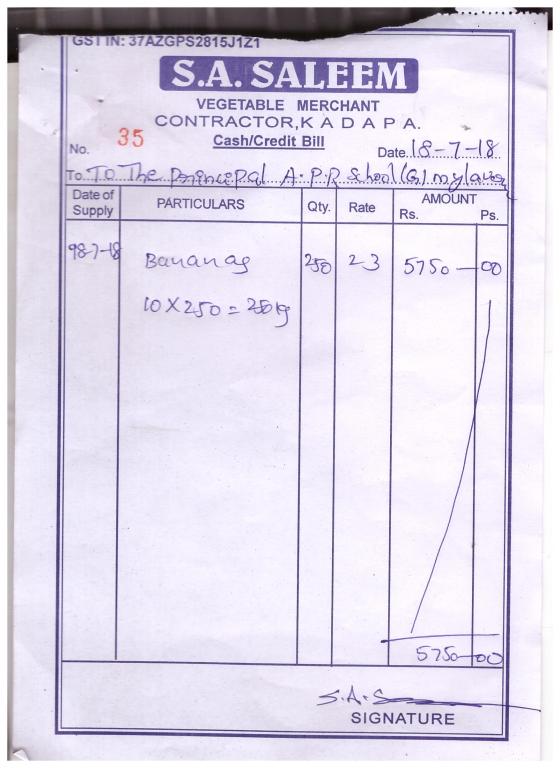 GSTIN: 37AZGPS2815J1Z1
S.A. SALEEM
VEGETABLE MERCHANT
CONTRACTOR, KADAPA.
Cash/Credit Bill
No. 35
Date 18-7-18
To To The Principal A.P.R School (G)
Date of Supply PARTICULARS Qty. Rate AMOUNT Rs. Ps.
Bananas 250 23 5750-00
10 X 250 =
5750-00
S.A.S
SIGNATURE